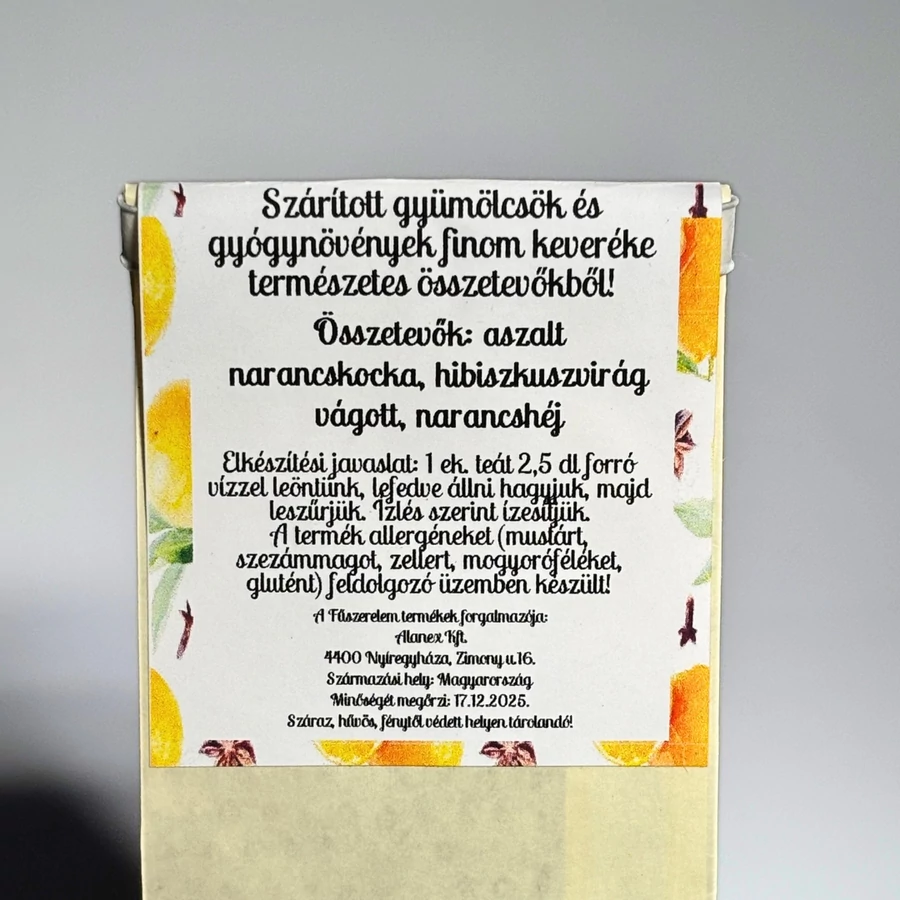 Szárított gyümölcsök és
gyógynövények finom keveréke
természetes összetevőkből!
Összetevők: aszalt
narancskocka, hibiszkuszvirág
vágott, narancshéj
Elkészítési javaslat: 1 ek. teát 2,5 dl forró
vízzel leöntünk, lefedve állni hagyjuk, majd
leszűrjük. Ízlés szerint ízesítjük.
A termék allergéneket (mustárt,
szezámmagot, zellert, mogyoróféléket,
glutént) feldolgozó üzemben készült!
A Fűszerelem termékek forgalmazója:
Alanex Kft.
4400 Nyíregyháza, Zimony u.16.
Származási hely: Magyarország
Minőségét megőrzi: 17.12.2025.
Száraz, hűvös, fénytől védett helyen tárolandó!